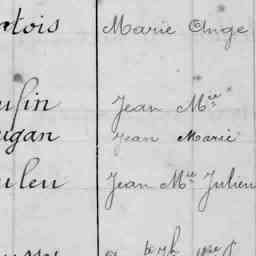 rtois Marie Ange
usin Jean Mie
ugan Jean Marie
uleu Jean Mie Julien